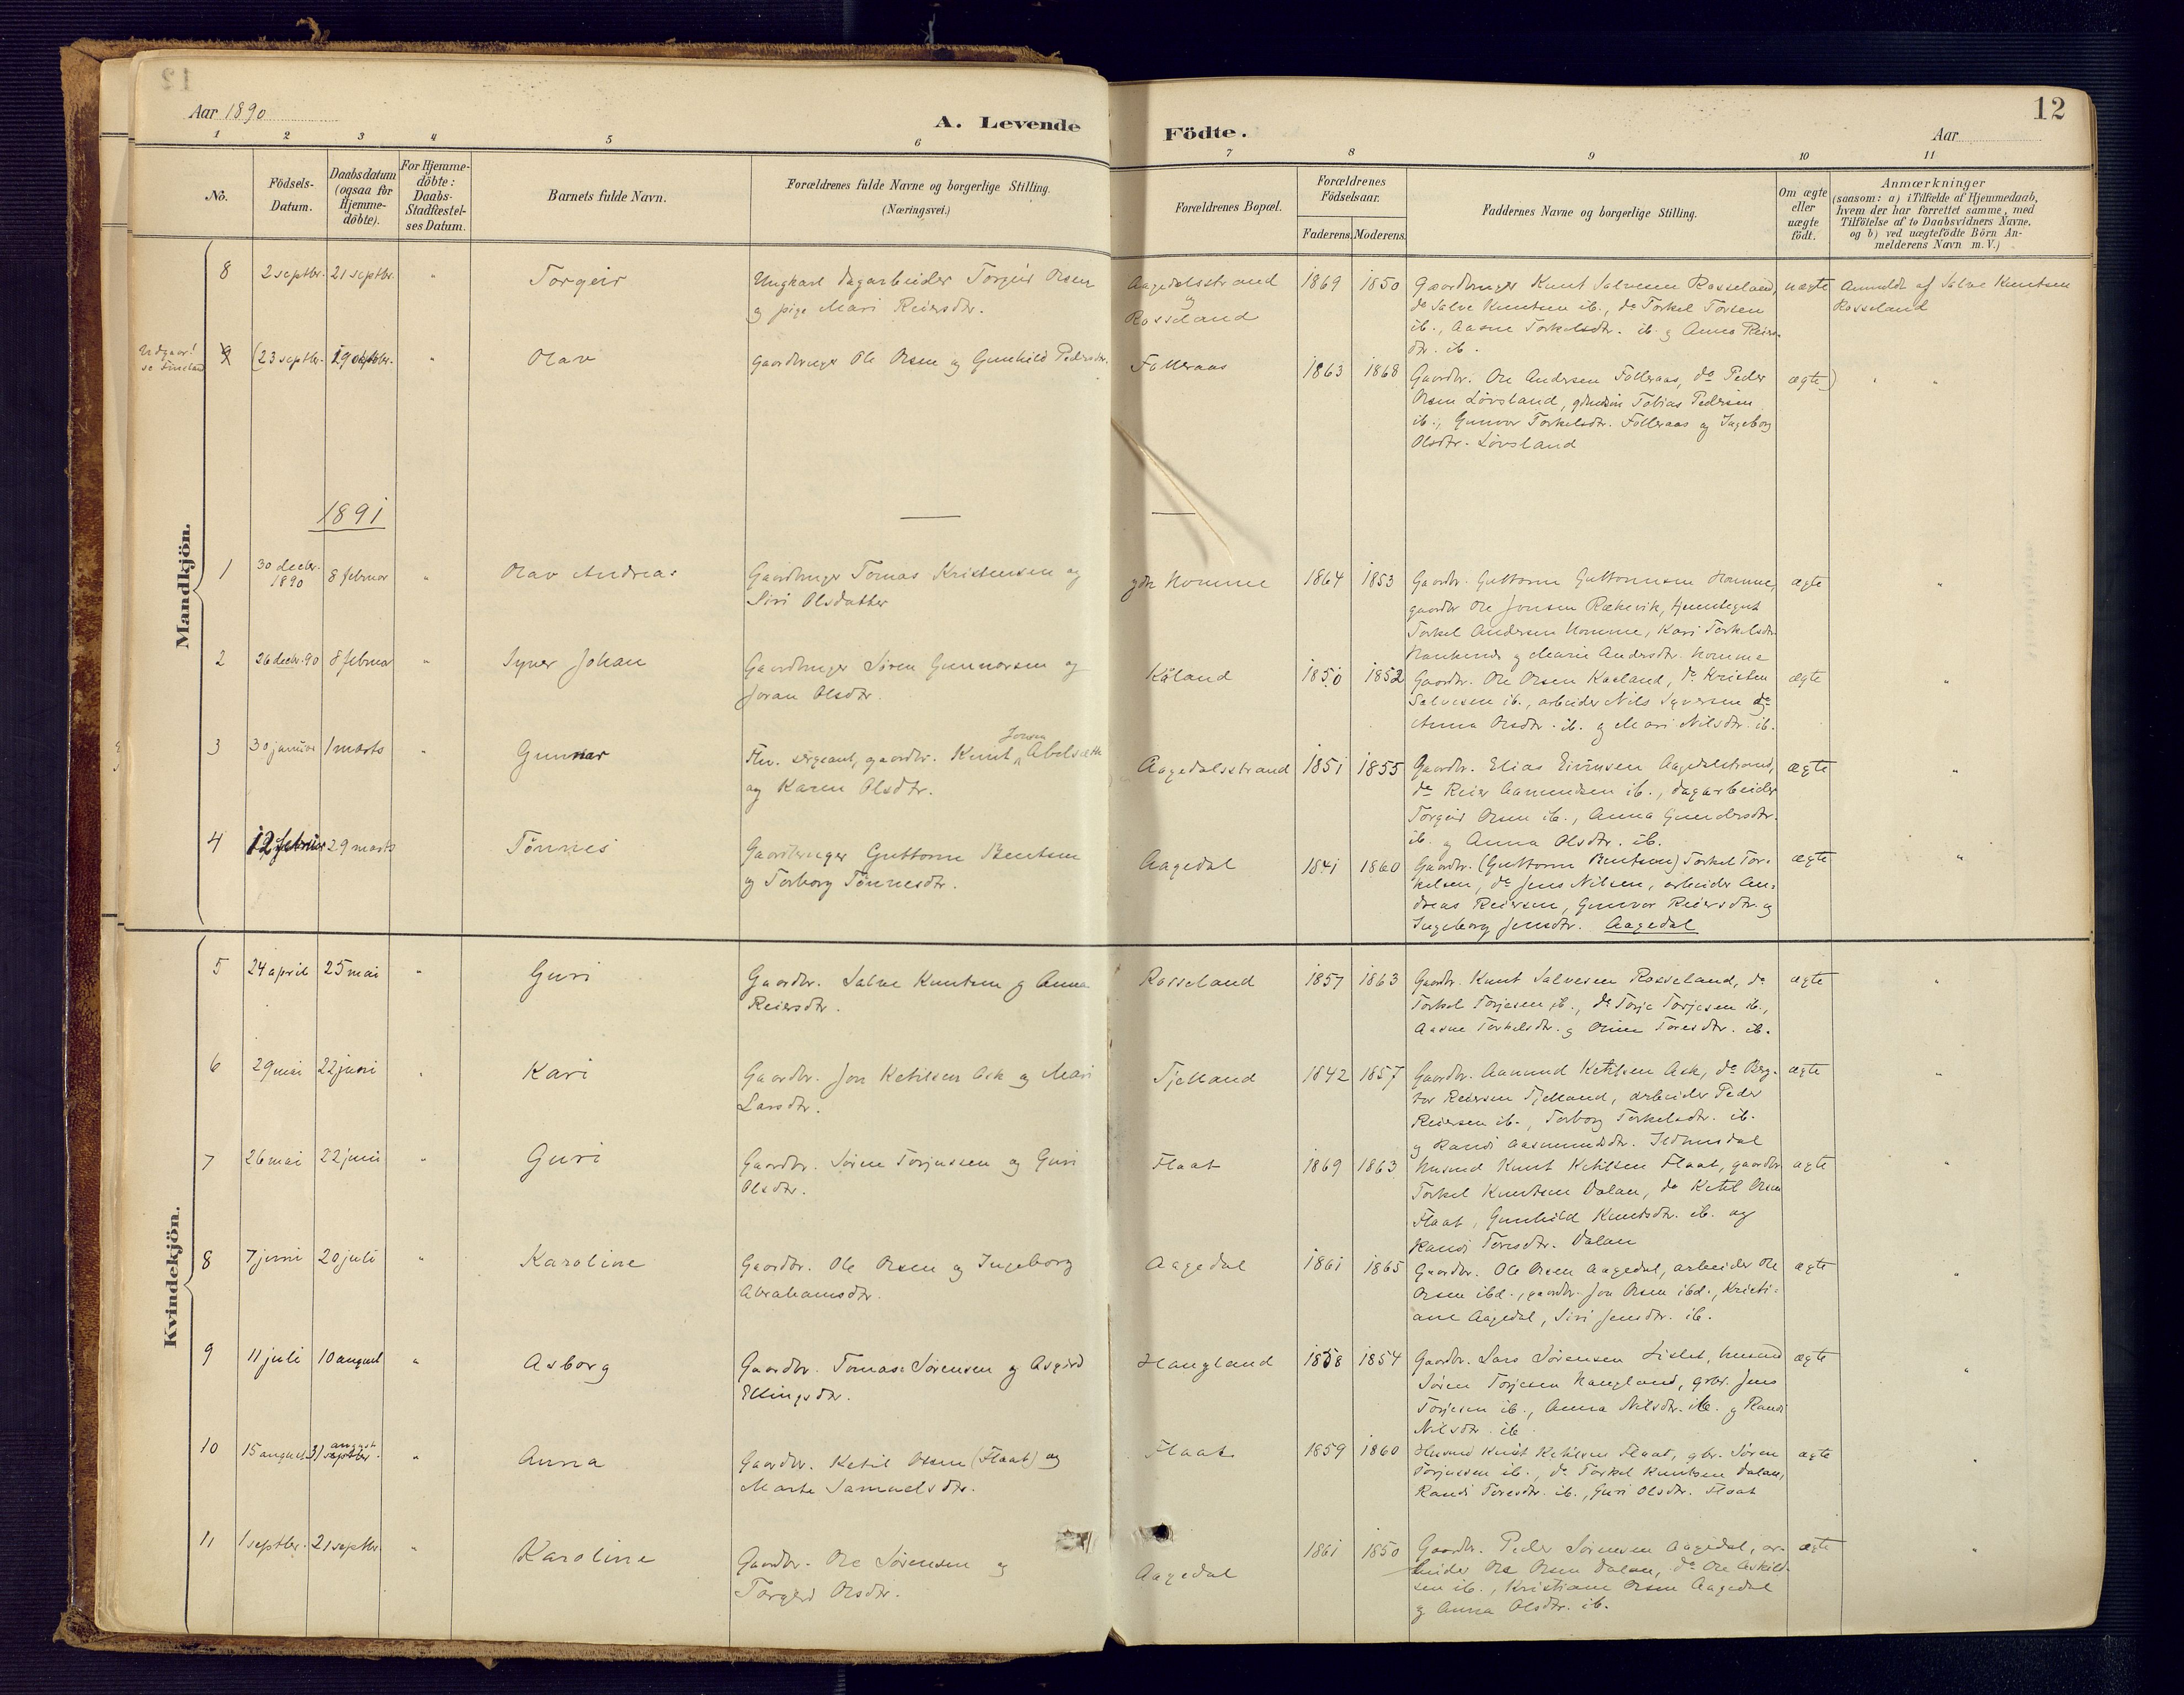 12
Aar 1890
A. Levende
Födte.
Aar
12
1 2 3 4 5 6 7 8 9 10 11
No.
Födsels-Datum.
Daabsdatum (ogsaa for Hjemme-döbte).
For Hjemme-döbte: Daabs-Stadfæstel-ses Datum.
Barnets fulde Navn.
Forældrenes fulde Navne og borgerlige Stilling.
(Næringsvei.)
Forældrenes Bopæl.
Forældrenes Födselsaar.
Faderens. Moderens.
Faddernes Navne og borgerlige Stilling.
Om ægte eller uægte födt.
Anmærkninger
(saasom: a) i Tilfælde af Hjemmedaab,
hvem der har forrettet samme, med
Tilföielse af to Daabsvidners Navne,
og b) ved uægtefödte Börn An-
melderens Navn m. V.)
Mandkjön.
8 2 septbr. 21 septbr. " Torgeir
Ungkarl dagarbeider Torgeir Olsen
og pige Mari Reiersdtr.
Aagedalsstrand
og
Rosseland
1869 1850
Gaardbruger Knut Salvesen Rosseland,
do Salve Knutsen ib., do Torkel Torsen
ib., Aasne Torkelsdtr. ib. og Anna Reiers-
dtr. ib.
uægte
Anmeldt af Salve Knutsen
Rosseland
Udgaar!
se Finsland
9 (23 septbr. 19 oktbr. " Olav
Gaardbruger Ole Olsen og Gunhild Pedersdtr.
Folleraas
1863 1868
Gaardbr. Ole Andersen Folleraas, do Peder
Olsen Lövsland, Tobias Pedersen
ib., Gunvor Torkelsdtr. Folleraas og Ingeborg
Olsdtr. Lövsland
ægte) " "
1891
1 30 decbr. 1890 8 februar " Olav Andreas
Gaardbruger Tomas Kristensen og
Siri Olsdatter
ydre Homme
1864 1853
Gaardbr. Guttorm Guttormsen Homme,
gaardbr Ole Jonsen Rækevik, tjenstegut
Torkel Andersen Homme, Kari Torkelsdtr.
og Marie Andersdtr. Homme
ægte "
2 26 decbr. 90 8 februar " Syver Johan
Gaardbruger Sören Gunnarsen og
Joran Olsdtr.
Kåland
1850 1852
Gaardbr. Ole Olsen Kaaland, do Kristen
Salvesen ib., arbeider Nils Syversen do
Anna Olsdtr. ib. og Mari Nilsdtr. ib.
ægte "
3 30 januar 1 marts " Gunnar
Fhv. sergeant, gaardbr. Knut Jonsen Abelsætt
og Karen Olsdtr.
Aagedalsstrand
1851 1855
Gaardbr. Elias Eivinsen Aagedalstrand,
do Reier Aamundsen ib., dagarbeider
Torgeir Olsen ib., Anna Gundersdtr.
ib. og Anna Olsdtr. ib.
ægte "
4 12 februar 29 marts Tönnes
Gaardbruger Guttorm Bentsen
og Torborg Tönnesdtr.
Aagedal
1841 1860
Gaardbr. (Guttorm Bentsen) Torkel Tor-
kelsen, do Jens Nilsen, arbeider An-
dreas Reiersen, Gunvor Reiersdtr. og
Ingeborg Jensdtr. Aagedal
ægte "
Kvindekjön.
5 24 april 25 mai " Guri
Gaardbr. Salve Knutsen og Anna
Reiersdtr.
Rosseland
1857 1863
Gaardbr. Knut Salvesen Rosseland, do
Torkel Torjesen ib., do Torje Torjesen ib.,
Aasne Torkelsdtr. og Toresdtr. ib.
ægte "
6 29 mai 22 juni " Kari
Gaardbr. Jon Ketilsen Ask og Mari
Larsdtr.
Tjelland
1842 1857
Gaardbr. Aamund Ketilsen Ask, do Berg-
tor Reiersen Tjelland, arbeider Peder
Reiersen ib., Torborg Torkelsdtr. ib.
og Randi Aasmundsdtr.
ægte "
7 26 mai 22 juni " Guri
Gaardbr. Sören Torjussen og Guri
Olsdtr.
Flaat
1869 1863
Husmd Knut Ketilsen Flaat, gaardbr
Torkel Knutsen Dalan, do Ketil Olsen
Flaat, Gunhild Knutsdtr. ib. og
Randi Toresdtr. Dalan
ægte "
8 7 juni 20 juli " Karoline
Gaardbr. Ole Olsen og Ingeborg
Abrahamsdtr.
Aagedal
1861 1865
Gaardbr. Ole Olsen Aagedal, arbeider Ole
Olsen ibd., gaardbr. Jon Olsen ibd., Kristi-
ane Aagedal, Siri Jensdtr. ib.
ægte "
9 11 juli 10 august " Asborg
Gaardbr. Tomas Sörensen og Asgjerd
Ellingsdtr.
Haugland
1858 1854
Gaardbr. Lars Sörensen Lislet, husmd
Sören Torjesen Haugland, grbr. Jens
Torjesen ib., Anna Nilsdtr. ib. og Randi
Nilsdtr. ib.
ægte "
10 15 august 31 august " Anna
Gaardbr. Ketil Olsen (Flaat) og
Marte Samuelsdtr.
Flaat
1859 1860
Husmd Knut Ketilsen Flaat, gbr. Sören
Torjussen ib., do Torkel Knutsen Dalan,
Randi Toresdtr. ib., Guri Olsdtr. Flaat
ægte "
11 1 septbr. 21 septbr. " Karoline
Gaardbr. Ole Sörensen og
Torgerd Olsdtr.
Aagedal
1861 1850
Gaardbr. Peder Sörensen Aagedal, ar-
beider Ole Olsen Dalan, do Ole Askild-
sen ib., Kristiane Olsen Aagedal
og Anna Olsdtr. ib.
ægte "